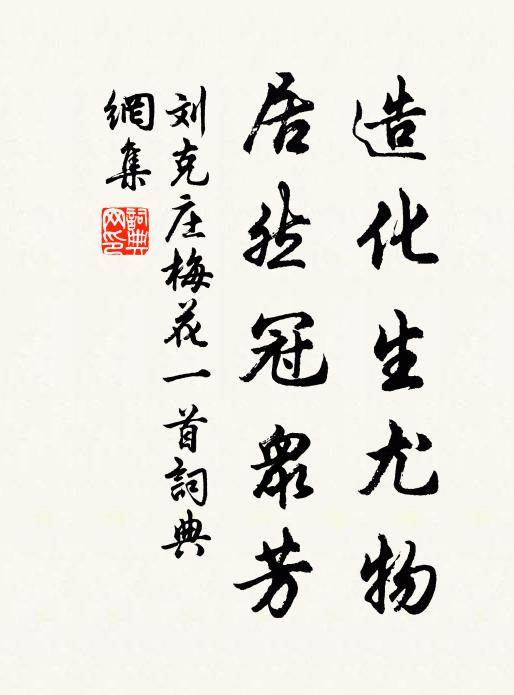 造化生尤物
居然冠眾芳
刘克庄梅花一首詞典
網集
詞典网印